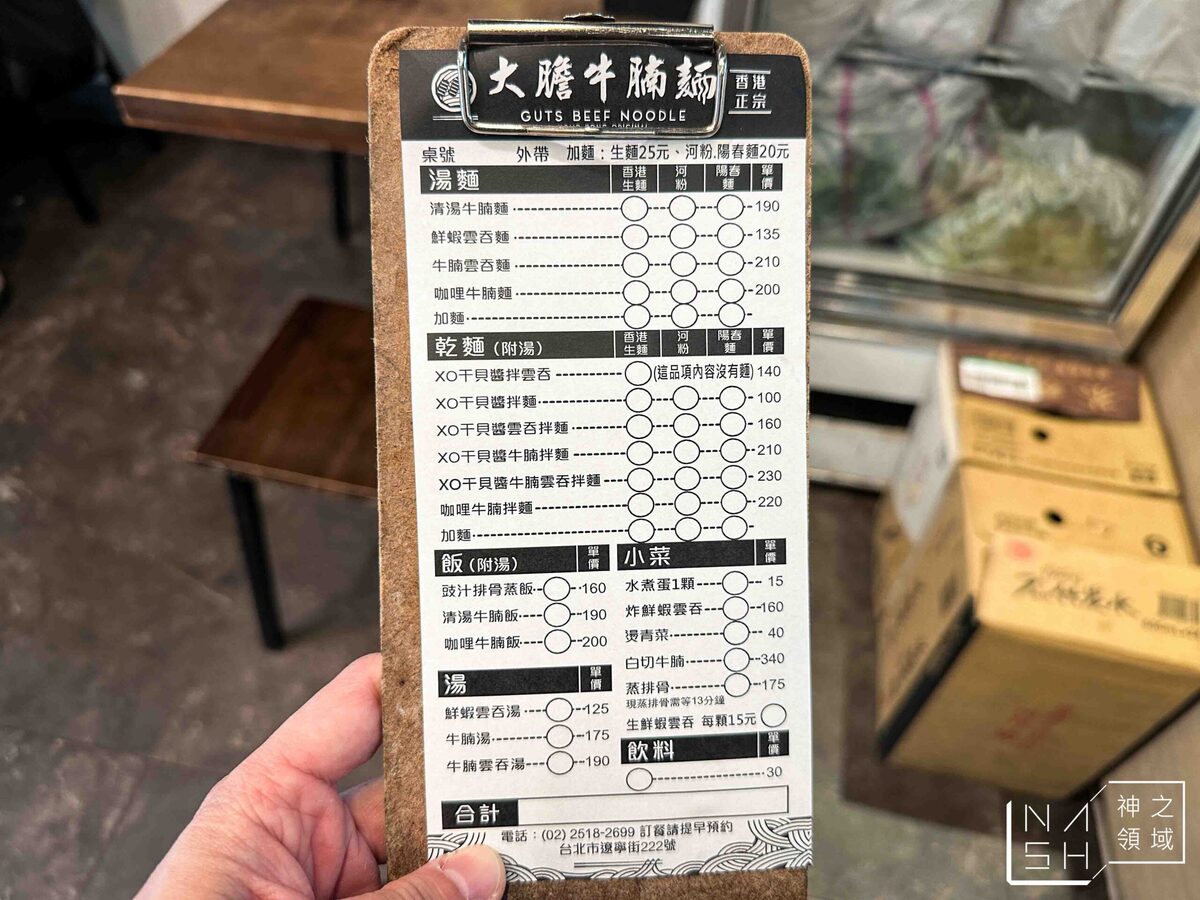 大膽牛腩麵 香港正宗
GUTS BEEF NOODLE
桌號 外帶 加麵：生麵25元、河粉.陽春麵20元
湯麵 香港生麵 河粉 陽春麵 單價
清湯牛腩麵 190
鮮蝦雲吞麵 135
牛腩雲吞麵 210
咖哩牛腩麵 200
加麵
乾麵（附湯） 香港生麵 河粉 陽春麵 單價
XO干貝醬拌雲吞 (這品項內容沒有麵) 140
XO干貝醬拌麵 100
XO干貝醬雲吞拌麵 160
XO干貝醬牛腩拌麵 210
XO干貝醬牛腩雲吞拌麵 230
咖哩牛腩拌麵 220
加麵
飯（附湯） 單價
豉汁排骨蒸飯 160
清湯牛腩飯 190
咖哩牛腩飯 200
湯 單價
鮮蝦雲吞湯 125
牛腩湯 175
牛腩雲吞湯 190
小菜 單價
水煮蛋1顆 15
炸鮮蝦雲吞 160
燙青菜 40
白切牛腩 340
蒸排骨 175
現蒸排骨需等13分鐘
生鮮蝦雲吞 每顆15元
飲料 單價
30
合計
電話：(02) 2518-2699 訂餐請提早預約
台北市遼寧街222號
NASH 神之領域